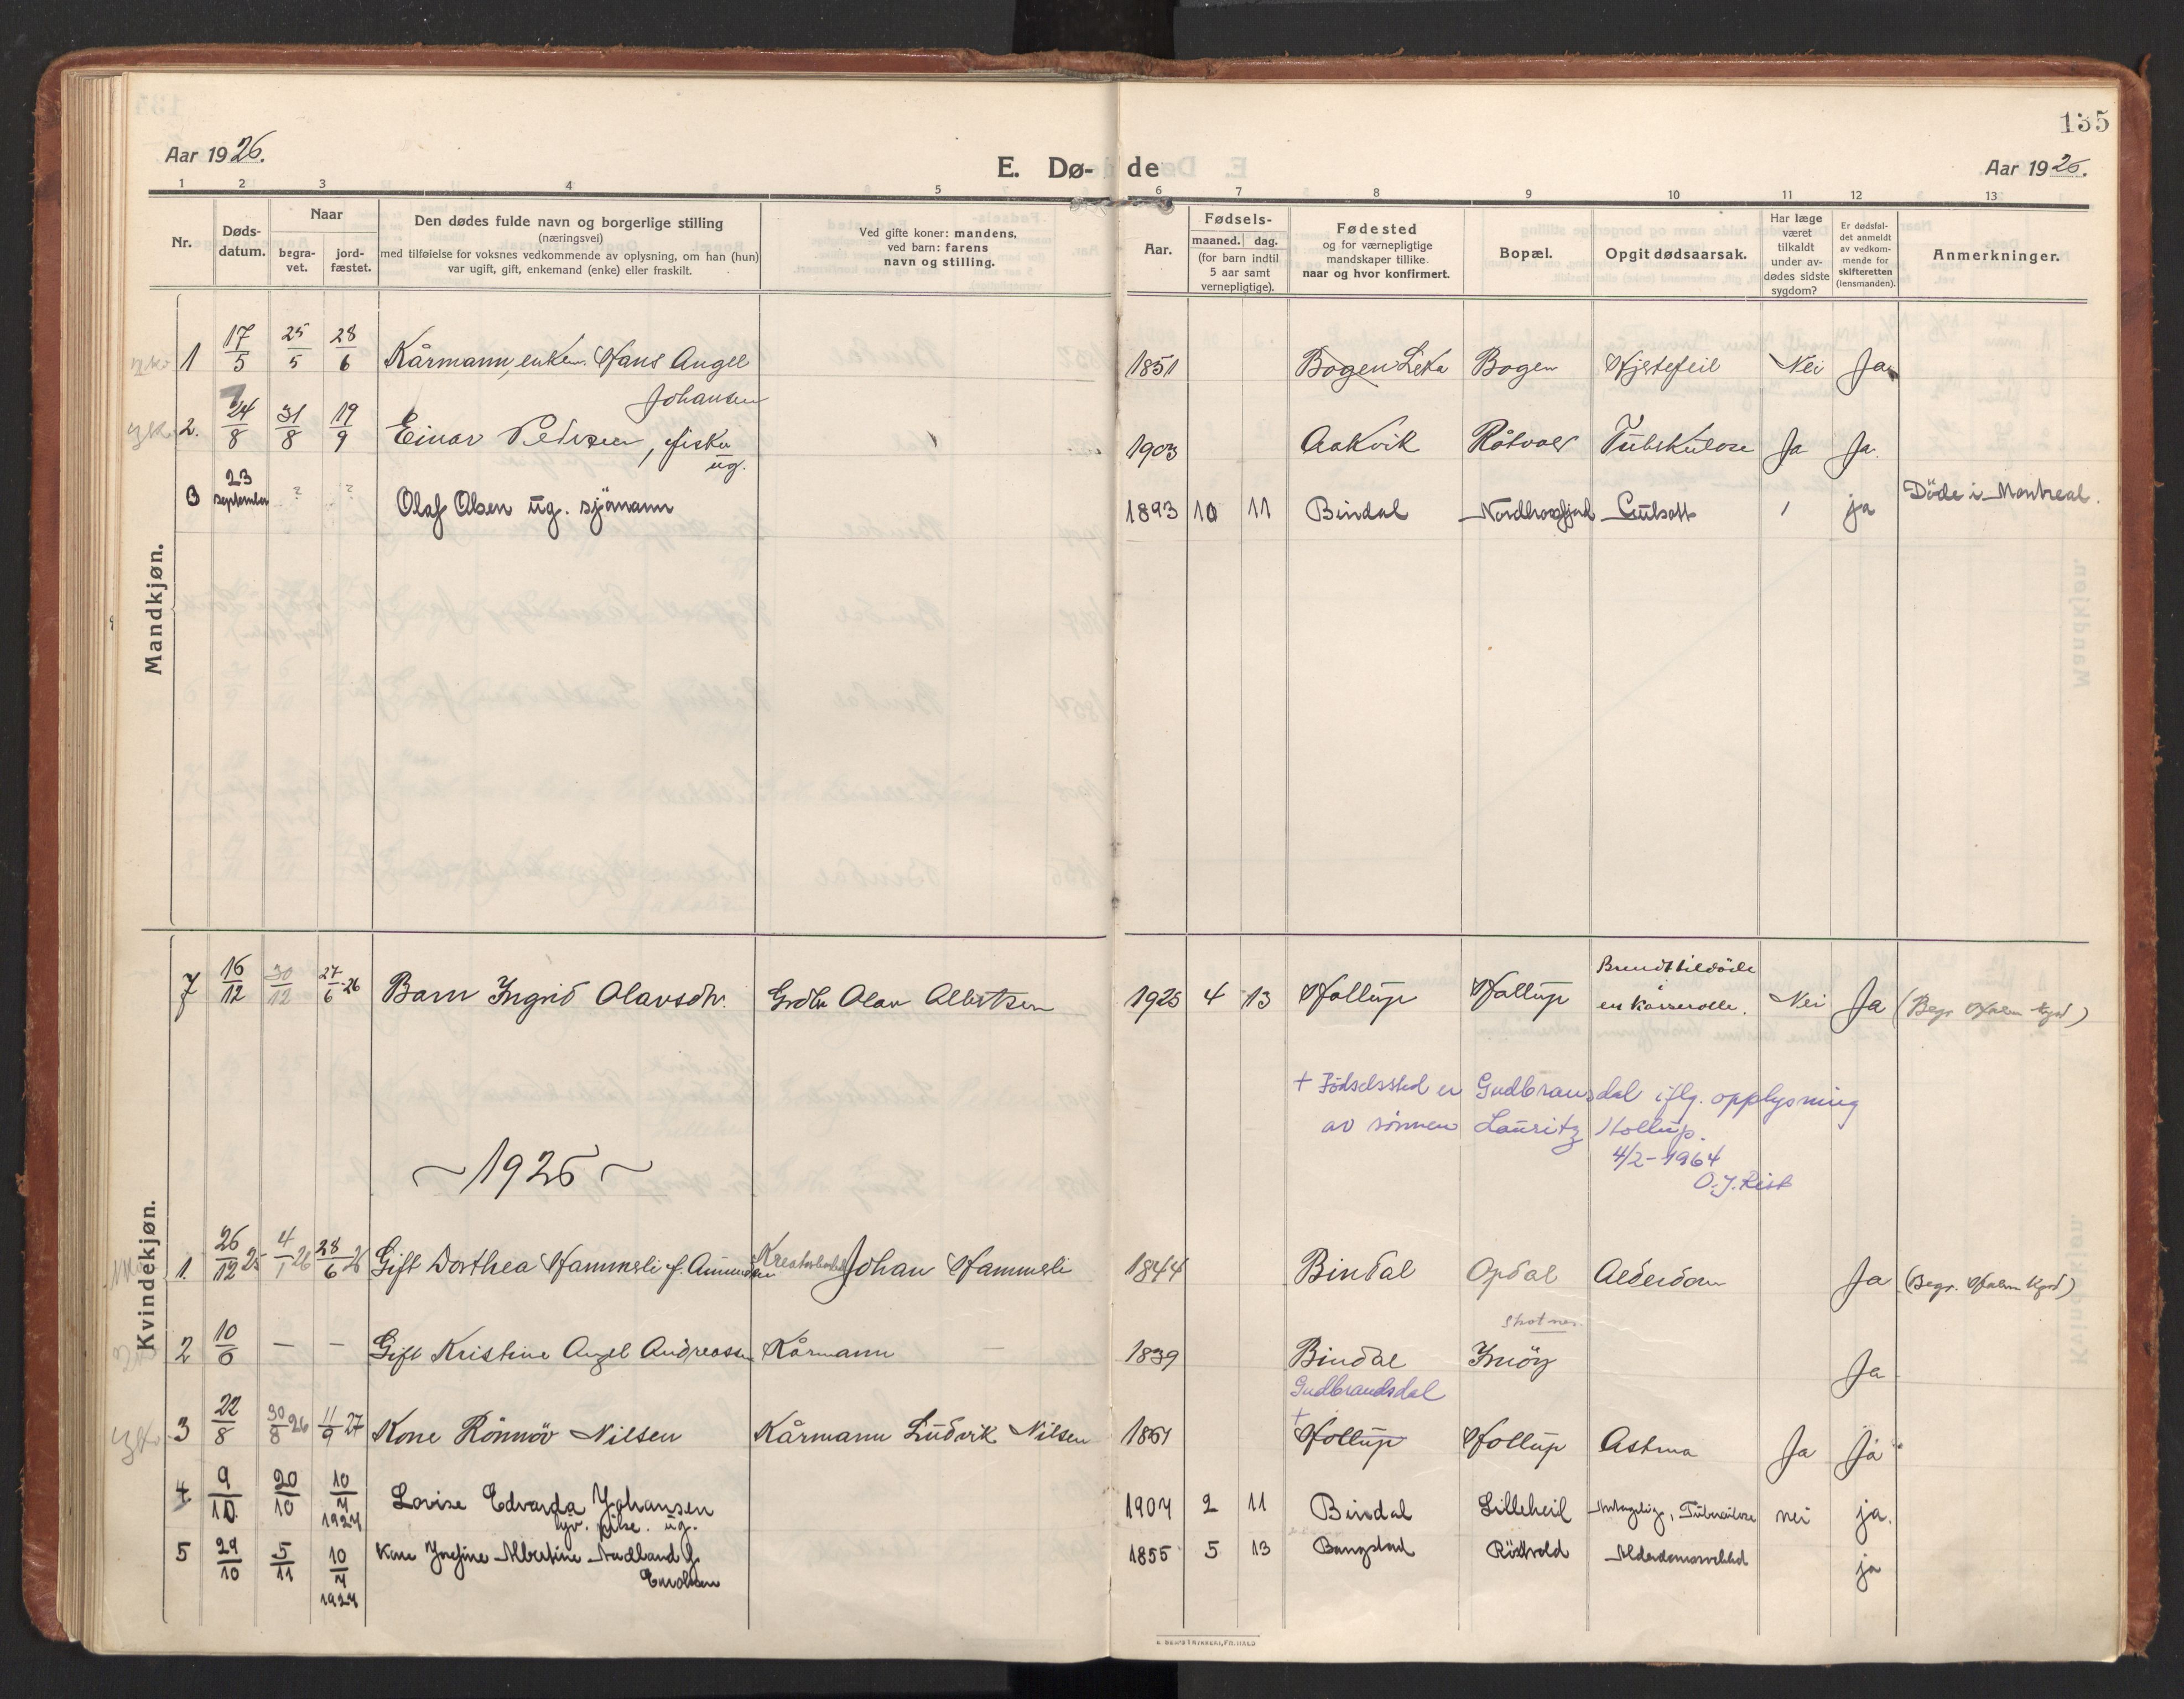 135
Aar 1926.
E. Dø- de
Aar 1926.
1 2 3 4 5 6 7 8 9 10 11 12 13
Nr.
Døds-
datum.
Naar
begra-
vet.
jord-
fæstet.
Den dødes fulde navn og borgerlige stilling
(næringsvei)
med tilføielse for voksnes vedkommende av oplysning, om han (hun)
var ugift, gift, enkemand (enke) eller fraskilt.
Ved gifte koner: mandens,
ved barn: farens
navn og stilling.
Aar.
Fødsels-
maaned. dag.
(for barn indtil
5 aar samt
vernepligtige).
Fødested
og for værnepligtige
mandskaper tillike.
naar og hvor konfirmert.
Bopæl.
Opgit dødsaarsak.
Har læge
været
tilkaldt
under av-
dødes sidste
sygdom?
Er dødsfal-
det anmeldt
av vedkom-
mende for
skifteretten
(lensmanden).
Anmerkninger.
Mandkjøn.
1 17/5 25/5 28/6 Kårmann, enkem. Hans Angel 1851 Bogen Leka Bogen Hjertefeil Nei Ja
Johansen
2. 24/8 31/8 19/9 Einar Pedersen, fisker 1903 Aakvik Råtvol Tuberkulose Ja Ja.
ug.
3 23 september ? ? Olaf Olsen ug. sjömann 1893 10 11 Bindal Nordhorsfjord Gulsott / ja Döde i Montreal.
Kvindekjøn.
Brendt til döde
7 16/12 30/12 27/6-26 Barn Ingrid Olavsdtr. Grdbr Olav Albertsen 1925 4 13 Hollup Hollup en kasserolle. Nei Ja (Begr Holm kgrd)
+ Födselssted er Gudbransdal iflg. opplysning
av sönnen Lauritz Hollup.
4/2-1964
O.J. Rist
~1926~
1. 26/12 25 4/1 26 28/6 26 Gift Dorthea Hammerli f. Amundsen Kreaturhandl Johan Hammerli 1844 Bindal Opdal Alderdom Ja (Begr. Holm kgrd)
Skotnes
2 10/6 — — Gift Kristine Angel Andreassen Kårmann — 1839 Bindal Imöy Ja
Gudbrandsdal
3 22/8 30/8 26 11/9 27 Kone Rönnöv Nilsen Kårmann Ludvik Nilsen 1861 + Hollup Hollup Astma Ja Ja
4 9/10. 20/10 10/7 1927 Lovise Edvarda Johansen 1907 2 11 Bindal Lilleheil Antagelig, Tuberculose nei ja.
tjv. pike. ug.
5 29/10 5/11 10/7 1927 Kone Josefine Albertine Nordland f. 1855 5 13 Bangstad Rödvold Alderdomssvekkelse ja